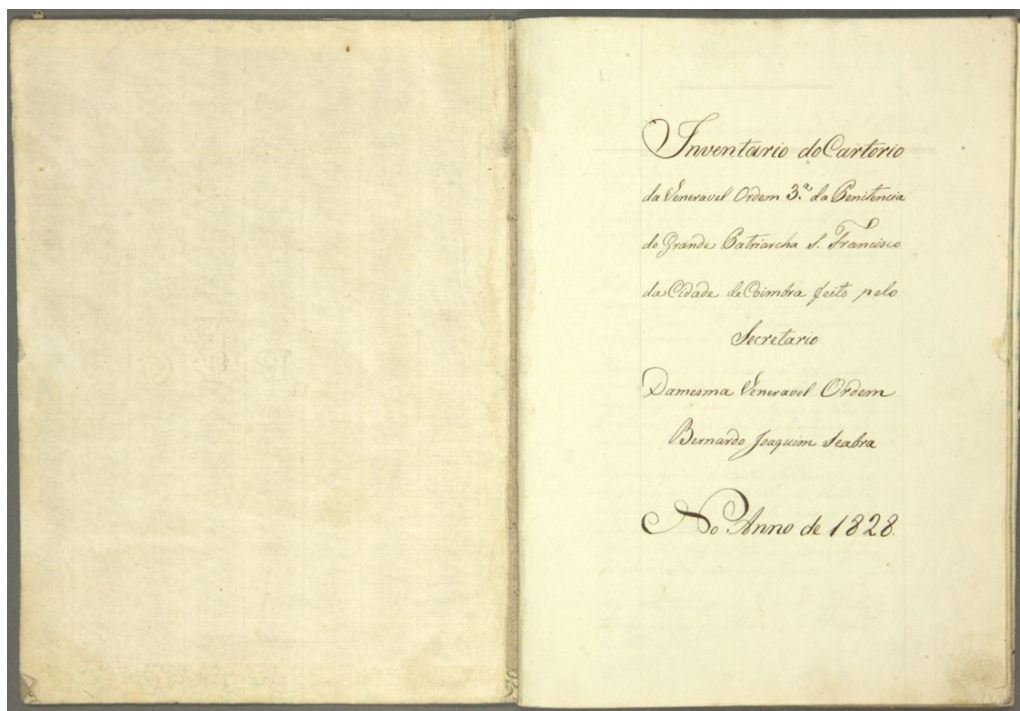 Inventario do Cartorio
da Veneravel Ordem 3.ª da Penitencia
do Grande Patriarcha S. Francisco
da Cidade de Coimbra feito pelo
Secretario
Damesma Veneravel Ordem
Bernardo Joaquim Seabra
No Anno de 1828.